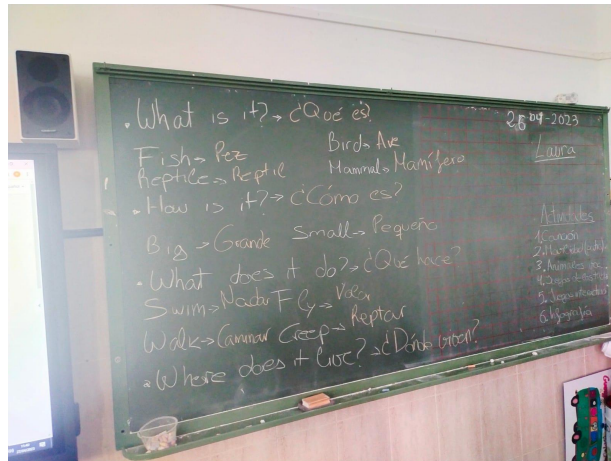 . What is it? → ¿Qué es?
Fish → Pez Bird → Ave
Reptile → Reptil Mammal → Mamífero
. How is it? → ¿Cómo es?
Big → Grande Small → Pequeño
. What does it do? → ¿Qué hace?
Swim → Nadar Fly → Volar
Walk → Caminar Creep → Reptar
. Where does it live? → ¿Dónde viven?
2023
Laura
Actividades
1. Canción
2.
3. Animales
4.
5.
6. Infografía